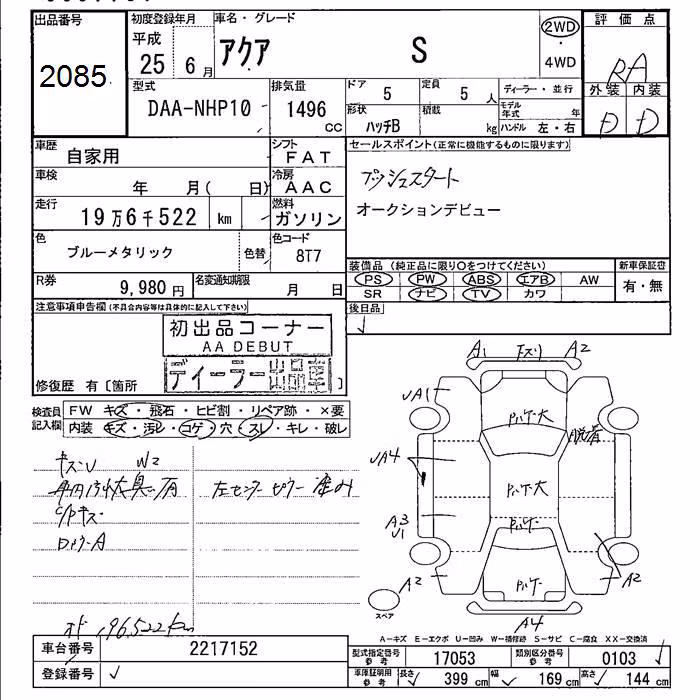 出品番号
2085
初度登録年月
平成
25 6月
車名・グレード
アクア S
2WD
・
4WD
評価点
RA
外装 内装
D D
型式
DAA-NHP10
排気量
1496 cc
ドア
5
定員
5 人
形状
ハッチB
積載
kg
ディーラー・並行
モデル年式 年
ハンドル 左・右
車歴
自家用
シフト
FAT
車検
年 月( 日)
冷房
AAC
走行
19万6千522 km
燃料
ガソリン
色
ブルーメタリック
色替
色コード
8T7
R券
9,980円
名変通知期限
月 日
セールスポイント(正常に機能するものに限ります)
プッシュスタート
オークションデビュー
装備品(純正品に限り○をつけてください)
PS PW ABS エアB AW
SR ナビ TV カワ
新車保証書
有・無
後日品
注意事項申告欄(不具合内容等は具体的に記入して下さい)
初出品コーナー
AA DEBUT
ディーラー出品車
修復歴 有〔箇所 〕
検査員記入欄
FW キズ・飛石・ヒビ割・リペア跡・×要
内装 キズ・汚レ・コゲ・穴・スレ・キレ・破レ
キズU W2
C/Pキズ
左センターピラー歪み
オド196,522km
A1 キズ A2
UA1
UA4
A3
U1
A2
A2
A4
スペア
A-キズ E-エクボ U-凹み W-補修跡 S-サビ C-腐食 XX-交換済
車台番号
2217152
登録番号
型式指定番号 参考
17053
類別区分番号 参考
0103
車庫証明用 参考
長さ 399 cm 幅 169 cm 高さ 144 cm